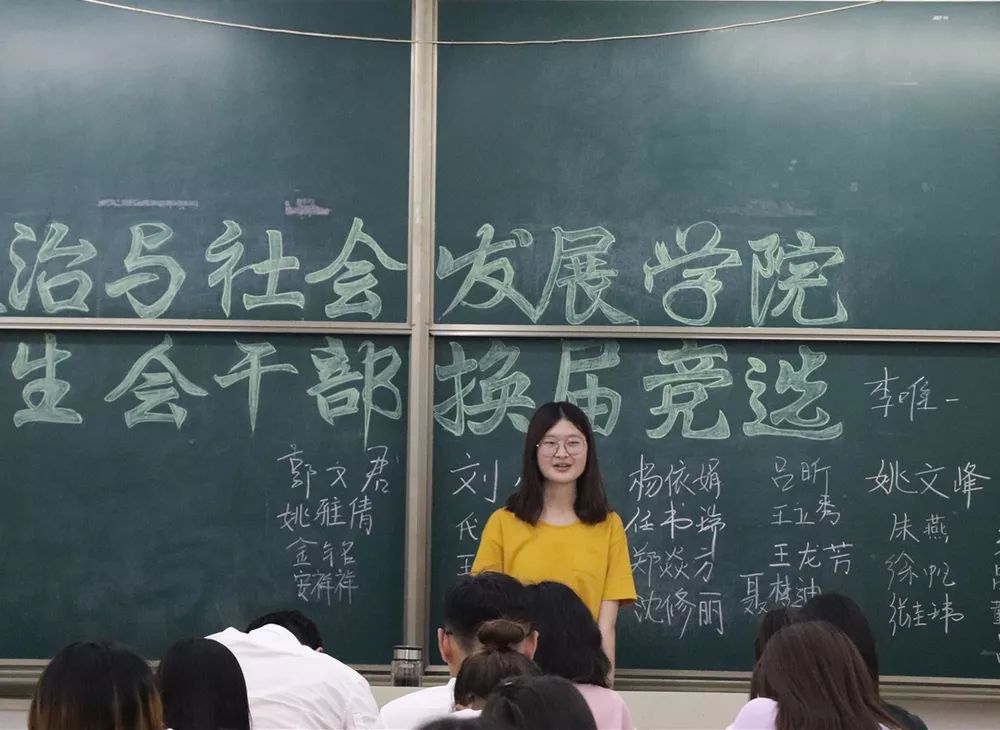 治与社会发展学院
生会干部换届竞选
李唯一
郭文君 刘 杨依娟 吕昕 姚文峰
姚雅倩 代 任书端 王卫秀 朱燕
王 郑焱方 王龙芳 徐帆
安祥祥 沈修丽 聂梦迪